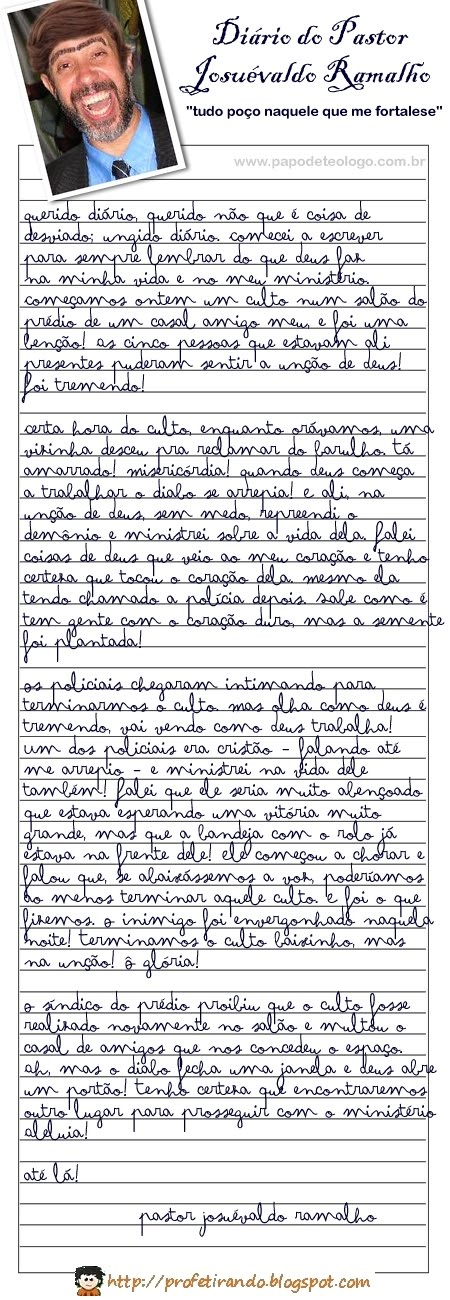 Diário do Pastor
Josuévaldo Ramalho
"tudo poço naquele que me fortalese"
www.papodeteologo.com.br
querido diário, querido não que é coisa de
desviado; ungido diário. comecei a escrever
para sempre lembrar do que deus faz
na minha vida e no meu ministério.
começamos ontem um culto num salão do
prédio de um casal amigo meu, e foi uma
benção! as cinco pessoas que estavam ali
presentes puderam sentir a unção de deus!
foi tremendo!
certa hora do culto, enquanto orávamos, uma
vizinha desceu pra reclamar do barulho. tá
amarrado! misericórdia! quando deus começa
a trabalhar o diabo se arrepia! e ali, na
unção de deus, sem medo, repreendi o
demônio e ministrei sobre a vida dela. falei
coisas de deus que veio ao meu coração e tenho
certeza que tocou o coração dela. mesmo ela
tendo chamado a polícia depois. sabe como é
tem gente com o coração duro, mas a semente
foi plantada!
os policiais chegaram intimando para
terminarmos o culto. mas olha como deus é
tremendo, vai vendo como deus trabalha!
um dos policiais era cristão - falando até
me arrepio - e ministrei na vida dele
também! falei que ele seria muito abençoado
que estava esperando uma vitória muito
grande, mas que a bandeja com o rolo já
estava na frente dele! ele começou a chorar e
falou que, se abaixássemos a voz, poderíamos
ao menos terminar aquele culto. e foi o que
fizemos. o inimigo foi envergonhado naquela
noite! terminamos o culto baixinho, mas
na unção! ô glória!
o síndico do prédio proibiu que o culto fosse
realizado novamente no salão e multou o
casal de amigos que nos concedeu o espaço.
ah, mas o diabo fecha uma janela e deus abre
um portão! tenho certeza que encontraremos
outro lugar para prosseguir com o ministério
aleluia!
até lá!
pastor josuévaldo ramalho
http://profetirando.blogspot.com